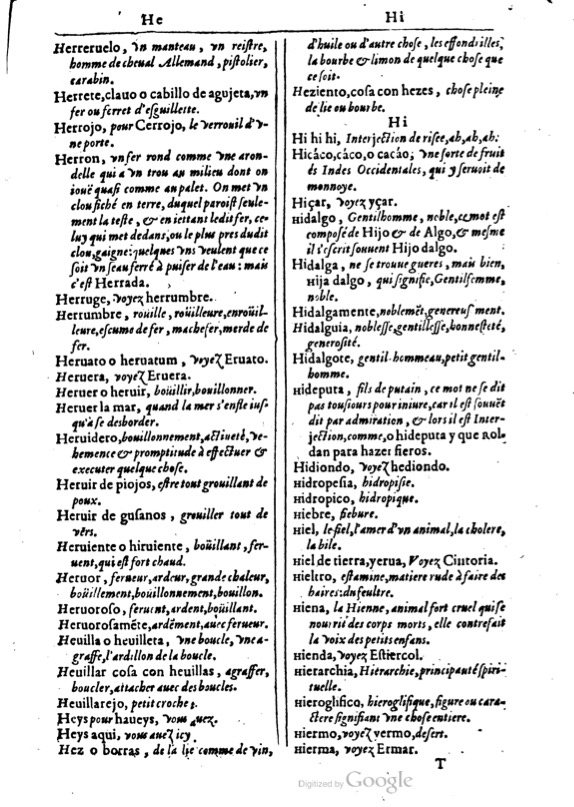 He
Herreruelo, vn manteau, vn reistre,
homme de cheual Allemand, pistolier,
carabin.
Herrete, clauo o cabillo de agujeta, vn
fer ou ferret d'esguillette.
Herrojo, pour Cerrojo, le verrouil d'v-
ne porte.
Herron, vn fer rond comme vne aron-
delle qui a vn trou au milieu dont on
ioüe quasi comme au palet. On met vn
clou fiché en terre, duquel paroist seule-
ment la teste, & en iettant ledit fer, ce-
luy qui met dedans, ou le plus pres dudit
clou, gaigne: quelques vns veulent que ce
soit vn seau ferré à puiser de l'eau: mais
c'est Herrada.
Herruge, voyez herrumbre.
Herrumbre, rouille, roüilleure, enroüil-
leure, escume de fer, machefer, merde de
fer.
Heruato o heruatum, voyez Eruato.
Heruera, voyez Eruera.
Heruer o heruir, boüillir, bouillonner.
Heruer la mar, quand la mer s'enfle ius-
qu'à se desborder.
Heruidero, bouillonnement, actiueté, ve-
hemence & promptitude à effectuer &
executer quelque chose.
Heruir de piojos, estre tout grouillant de
poux.
Heruir de gusanos, grouiller tout de
vers.
Heruiente o hiruiente, boüillant, fer-
uent, qui est fort chaud.
Heruor, ferueur, ardeur, grande chaleur,
boüillement, boüillonnement, bouillon.
Heruoroso, feruent, ardent, boüillant.
Heruorosamēte, ardēment, auec ferueur.
Heuilla o heuilleta, vne boucle, vne a-
graffe, l'ardillon de la boucle.
Heuillar cosa con heuillas, agraffer,
boucler, attacher auec des boucles.
Heuillarejo, petit croche.
Heys pour haueys, vous auez.
Heys aqui, vous auez icy.
Hez o borras, de la lie comme de vin,
Hi
d'huile ou d'autre chose, les effondrilles,
la bourbe & limon de quelque chose que
ce soit.
Heziento, cosa con hezes, chose pleine
de lie ou bourbe.
Hi
Hi hi hi, Interjection de risee, ah, ah, ah:
Hicáco, cáco, o cacáo; vne sorte de fruit
és Indes Occidentales, qui y seruoit de
monnoye.
Hiçar, voyez yçar.
Hidalgo, Gentilhomme, noble, ce mot est
composé de Hijo & de Algo, & mesme
il s'escrit souuent Hijo dalgo.
Hidalga, ne se trouue gueres, mais bien,
Hija dalgo, qui signifie, Gentilfemme,
noble.
Hidalgamente, noblemēt, genereusment.
Hidalguia, noblesse, gentillesse, honnesteté,
generosité.
Hidalgote, gentil-hommeau, petit gentil-
homme.
Hideputa, fils de putain, ce mot ne se dit
pas tousiours pour iniure, car il est souuēt
dit par admiration, & lors il est Inter-
jection, comme, o hideputa y que Rol-
dan para hazer fieros.
Hidiondo, voyez hediondo.
Hidropesia, hidropisie.
Hidropico, hidropique.
Hiebre, fiebure.
Hiel, le fiel, l'amer d'vn animal, la cholere,
la bile.
Hiel de tierra, yerua, Voyez Cintoria.
Hieltro, estamine, matiere rude à faire des
haires: du feultre.
Hiena, la Hienne, animal fort cruel qui se
nourrit des corps morts, elle contrefait
la voix des petits enfans.
Hienda, voyez Estiercol.
Hierarchia, Hierarchie, principauté spiri-
tuelle.
Hieroglifico, hieroglifique, figure ou cara-
ctere signifiant vne chose entiere.
Hiermo, voyez yermo, desert.
Hierma, voyez Ermar.
T
Digitized by Google